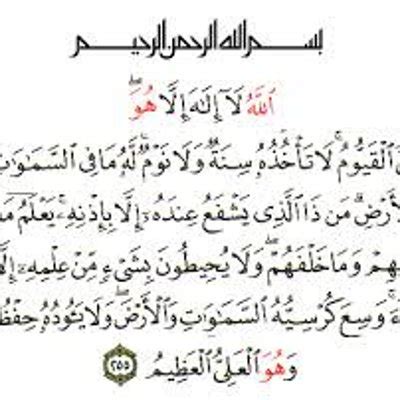 بسم الله الرحمن الرحيم
ٱللَّهُ لَآ إِلَٰهَ إِلَّا هُوَ ۖ
ٱلْقَيُّومُ ۚ لَا تَأْخُذُهُۥ سِنَةٌ وَلَا نَوْمٌ ۚ لَّهُۥ مَا فِى ٱلسَّمَٰوَٰتِ
لْأَرْضِ ۗ مَن ذَا ٱلَّذِى يَشْفَعُ عِندَهُۥٓ إِلَّا بِإِذْنِهِۦ ۚ يَعْلَمُ مَ
يهِمْ وَمَا خَلْفَهُمْ ۖ وَلَا يُحِيطُونَ بِشَىْءٍ مِّنْ عِلْمِهِۦٓ إِلَّا
ءَ ۚ وَسِعَ كُرْسِيُّهُ ٱلسَّمَٰوَٰتِ وَٱلْأَرْضَ ۖ وَلَا يَـُٔودُهُۥ حِفْظُ
وَهُوَ ٱلْعَلِىُّ ٱلْعَظِيمُ ٢٥٥